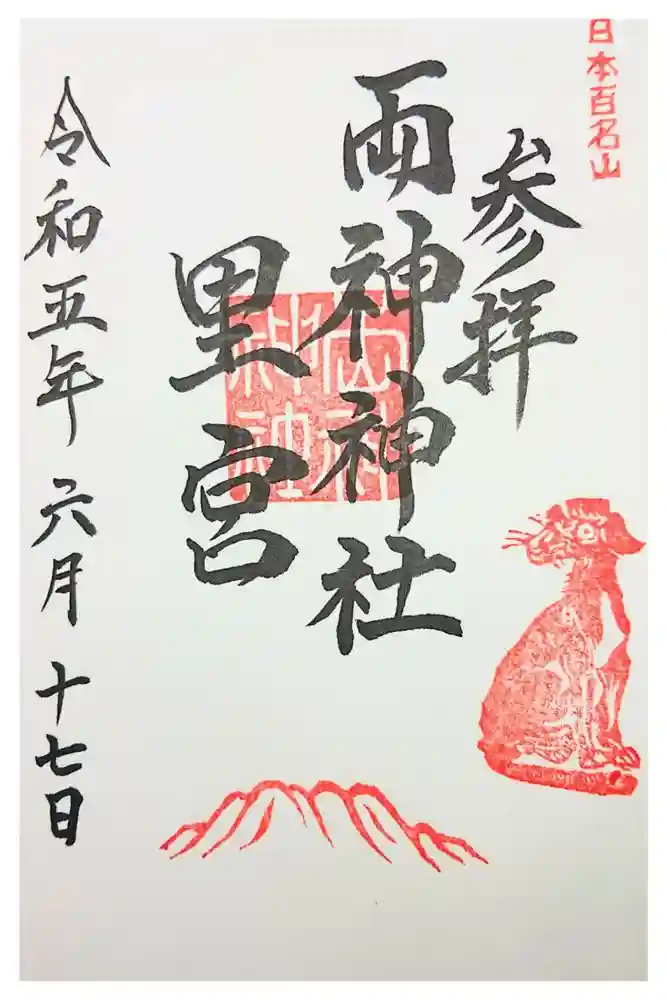 日本百名山
参拝
両神神社
里宮
両神
神社
令和五年六月十七日